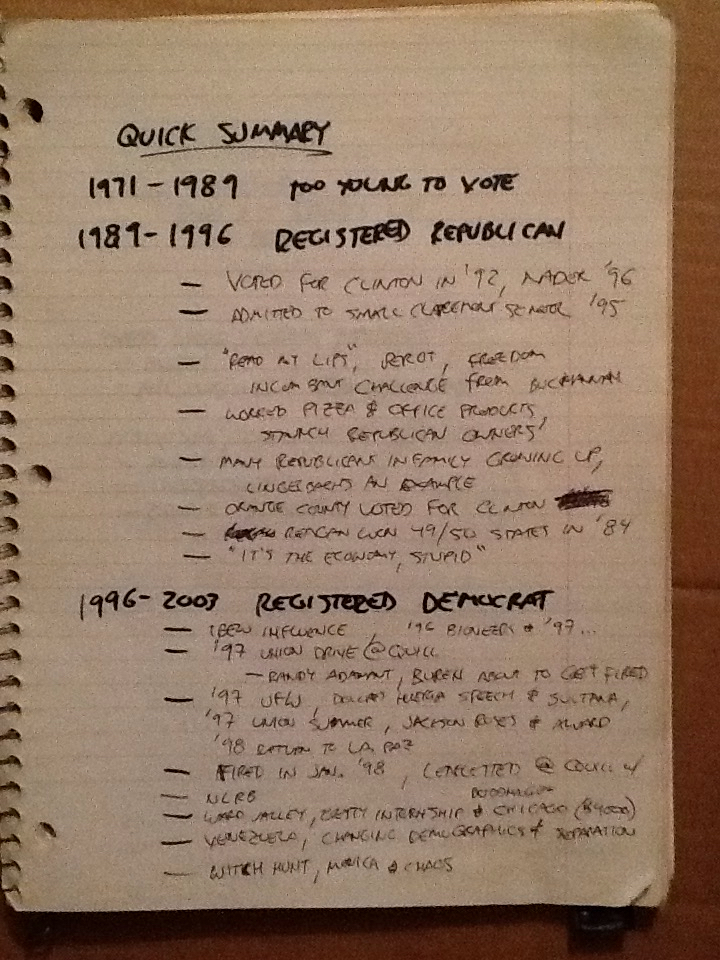 QUICK SUMMARY
1971-1989 TOO YOUNG TO VOTE
1989-1996 REGISTERED REPUBLICAN
- VOTED FOR CLINTON IN '92, NADER '96
- ADMITTED TO SMALL CLAREMONT '95
- "READ MY LIPS", PEROT, FREEDOM
INCUMBENT CHALLENGE FROM BUCHANAN
- WORKED PIZZA & OFFICE PRODUCTS,
STAUNCH REPUBLICAN OWNERS
- MANY REPUBLICANS IN FAMILY GROWING UP,
AN EXAMPLE
- ORANGE COUNTY VOTED FOR CLINTON
- REAGAN WON 49/50 STATES IN '84
- "IT'S THE ECONOMY, STUPID"
1996-2003 REGISTERED DEMOCRAT
- IBEW INFLUENCE, '96 BIONEERS & '97...
- '97 UNION DRIVE @ QUILL
- RANDY ADAMANT, ABOUT TO GET FIRED
- '97 UFW, HUERTA SPEECH & SULTANA,
'97 UNION SUMMER, JACKSON BUSES & AWARD
'98 RETURN TO LA PAZ
- FIRED IN JAN. '98, @ QUILL w/
- NLRB
- WARD VALLEY, GETTY INTERNSHIP & CHICAGO ($4000)
- VENEZUELA, CHANGING DEMOGRAPHICS & SEPARATION
- WITCH HUNT, MONICA & CHAOS